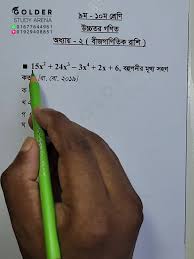 GOLDER
STUDY ARENA
01677664961
01929408851
৯ম - ১০ম শ্রেণি
উচ্চতর গণিত
অধ্যায় - ২ ( বীজগাণিতিক রাশি )
15x⁵ + 24x³ − 3x⁴ + 2x + 6, বহুপদীর মুখ্য সহগ
কত? (রা. বো. ২০১৯)
ক
খ